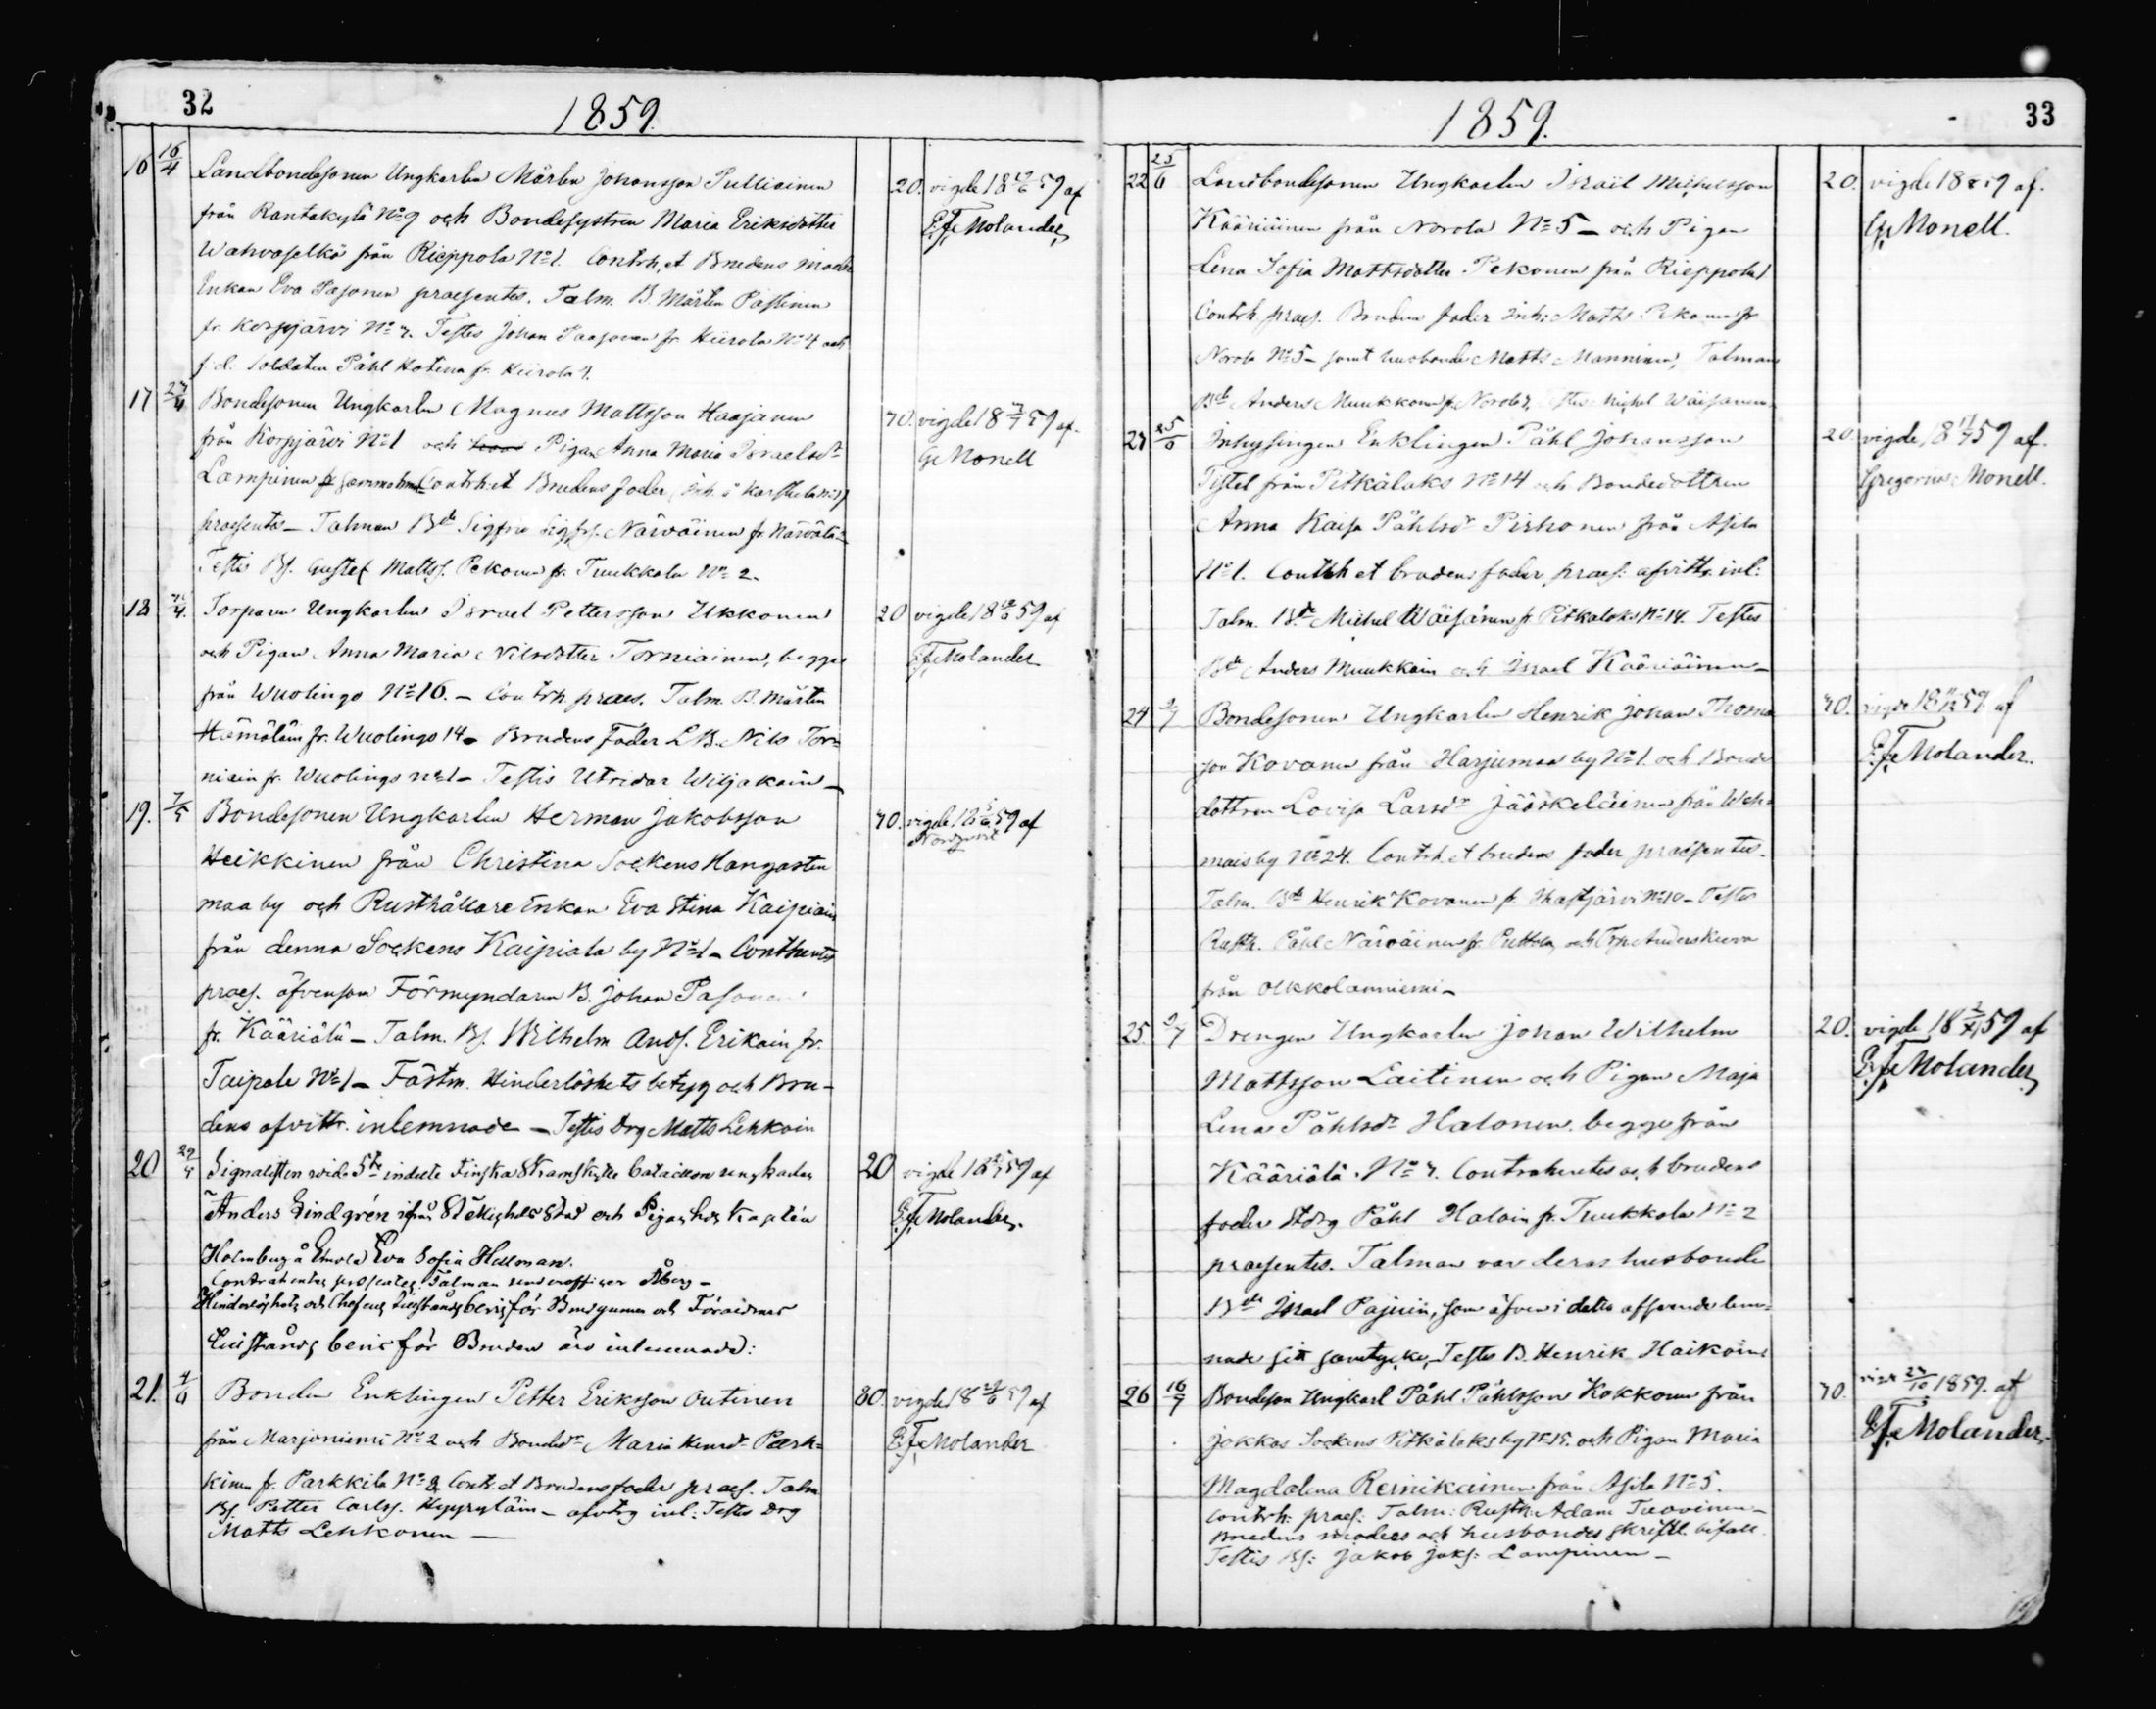 32
1859.
16 16/4 Landbondesonen Ungkarlen Mårten Johansson Pulliainen
från Rantakylä No 9 och Bondesystren Maria Eriksdotter
Wahvaselkä från Rieppola No 1. Contrh. et Brudens moder
Enkan Eva Pasonen praesentes. Talm. B. Mårten Passinen
fr. Korpjärvi No 7. Testes Johan Paasonen fr. Hiirola No 4 och
f.d. Soldaten Påhl Hotinen fr. Hiirola 7.
20. vigde 18 59 af
E. F. Molander
17 27/4 Bondesonen Ungkarlen Magnus Mattsson Haajanen
från Korpjärvi No 1 och Pigan Anna Maria Israelsdr
Lampinen fr samma by Contrh et Brudens fader (Inh. i Karstula No 1)
praesentes – Talman Bde Sigfrid Sigfrs. Närväinen fr. Närvälä –
Testis Bs. Gustef Mattss. Pekonen fr. Tuukkala No 2.
70. vigde 18 59 af
G. Monell
18 /4. Torparen Ungkarlen Israel Pettersson Ukkonen
och Pigan Anna Maria Nilsdotter Torniainen, begge
från Wuolingo No 16. – Contrh praes. Talm. B. Mårten
Hämäläin fr. Wuolingo 14 – Brudens fader L.B. Nils Tor-
niain fr. Wuolingo No 1 – Testis Utridar Wiljakain –
20 vigde 18 59 af
E. F. Molander
19. 7/5 Bondesonen Ungkarlen Herman Jakobsson
Heikkinen från Christina Sockens Hangasten
maa by och Rusthållare Enkan Eva Stina Kaipiain
från denna Sockens Kaipiala by No 1 – Contrhentes
praes. äfvensom Förmyndaren B. Johan Pasonen
fr. Kääriälä – Talm. Bs. Wilhelm Ands. Erikain fr.
Taipale No 1 – Fästm. Hinderlöshets betyg och Bru-
dens afvittr. inlemnade – Testis Drg Matts Lehkoin
70. vigde 18 59 af
Nordqvist
20 29/5 Signalisten wid 5te indelte Finska Skarpskytte bataillon ungkarlen
Anders Lindgrén ifrån St Michels Stad och Pigan hos Kaptén
Holmberg å Emola Eva Sofia Hellman.
Contrahentes praesentes Talman underofficer Åberg –
Hinderlöshets och Chefens tillstånds bevis för Brudgummen och Föräldrars
tillstånds bevis för Bruden äro inlemnade:
20 vigde 18 59 af
E. F. Molander.
21. /6 Bonden Enklingen Petter Eriksson Outinen
från Marjoniemi No 2 och Bondedr Maria Henrdr Park-
kinen fr. Parkkila No 2 Contr. et Brudens fader praes. Talm.
Bs. Petter Carls. Hyyryläin – afvittrg inl: Testes Drg
Matts Lehkonen –
80. vigde 18 59 af
E. F. Molander
33
1859.
22 25/6 Landbondesonen Ungkarlen Israël Michelsson
Kääriäinen från Norola No 5 – och Pigan
Lena Sofia Mattsdotter Pekonen från Rieppola 1
Contrh praes. Brudens fader Inh: Matts Pekonen fr
Norola No 5 – samt husbonde Matts Manninen, Talman
Bde Anders Muukkonen fr. Norola 7, Testes Michel Wäisänen
20. vigde 18 59 af.
G. Monell.
23 25/6 Inhysingen Enklingen Påhl Johansson
Tistel från Pitkälaks No 14 och Bondedottren
Anna Kaisa Påhlsdr Pirhonen från Asila
No 1. Contrh et brudens fader praes: afvittr. inl:
Talm. Bde Michel Wäisänen fr. Pitkälaks No 14. Testes
Bde Anders Muukkain och Israel Kääriäinen –
20 vigde 18 59 af.
Gregorius Monell.
24 /7 Bondesonen Ungkarlen Henrik Johan Thoma-
son Kovanen från Harjumaa by No 1. och Bonde
dottren Lovisa Larsdr Jääskeläinen från Weh-
mais by No 24. Contrh. et brudens fader praesentes.
Talm. Bde Henrik Kovanen fr. No 10 – Testes
Rusth. Påhl Närväinen fr. Puttola och Torp Anders Kuva
från Olkkolanniemi –
70. vigde 18 59 af
E. F. Molander.
25 /7 Drengen Ungkarlen Johan Wilhelm
Mattsson Laitinen och Pigan Maja
Lena Påhlsdr Halonen begge från
Kääriälä No 7. Contrahentes och brudens
fader Stdrg Påhl Haloin fr. Tuukkola No 2
praesentes. Talman var deras husbonde
Bde Israel Pajuin, som äfven i detta afseende lem-
nade sitt samtycke, Testes B. Henrik Haikoine
20. vigde 18 59 af
E. F. Molander
26 16/7 Bondeson Ungkarl Påhl Påhlsson Kokkonen från
Jokkas Sockens Pitkälaks by No 15. och Pigan Maria
Magdalena Reinikainen från Asila No 5.
Contrh: praes: Talm: Rusth: Adam Tuovinen –
Brudens moders och husbondes skriftl. bifall.
Testis Bs: Jakob Jaks: Lampinen –
70. vigde /10 1859. af
E. F. Molander.